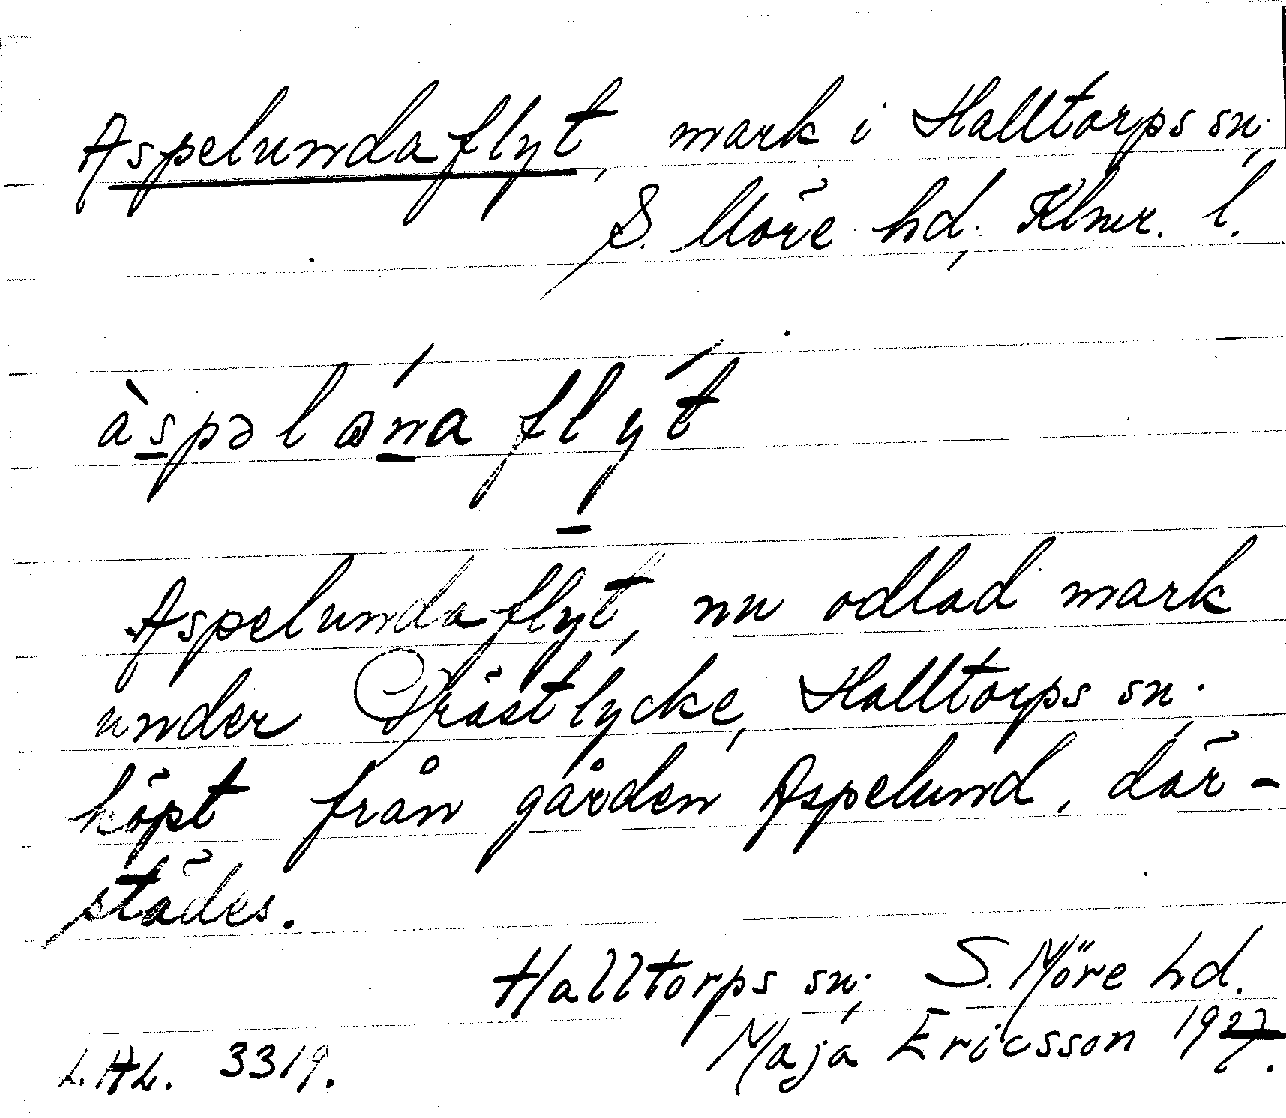 Aspelundaflyt, mark i Halltorps sn,
S. Möre hd, Klmr. l.
àspəlɷ́na flýt
Aspelundaflyt, nu odlad mark
under Prästlycke, Halltorps sn.
köpt från gården Aspelund, där-
städes.
Halltorps sn; S. Möre hd.
Maja Ericsson 1927.
L.A.L. 3319.